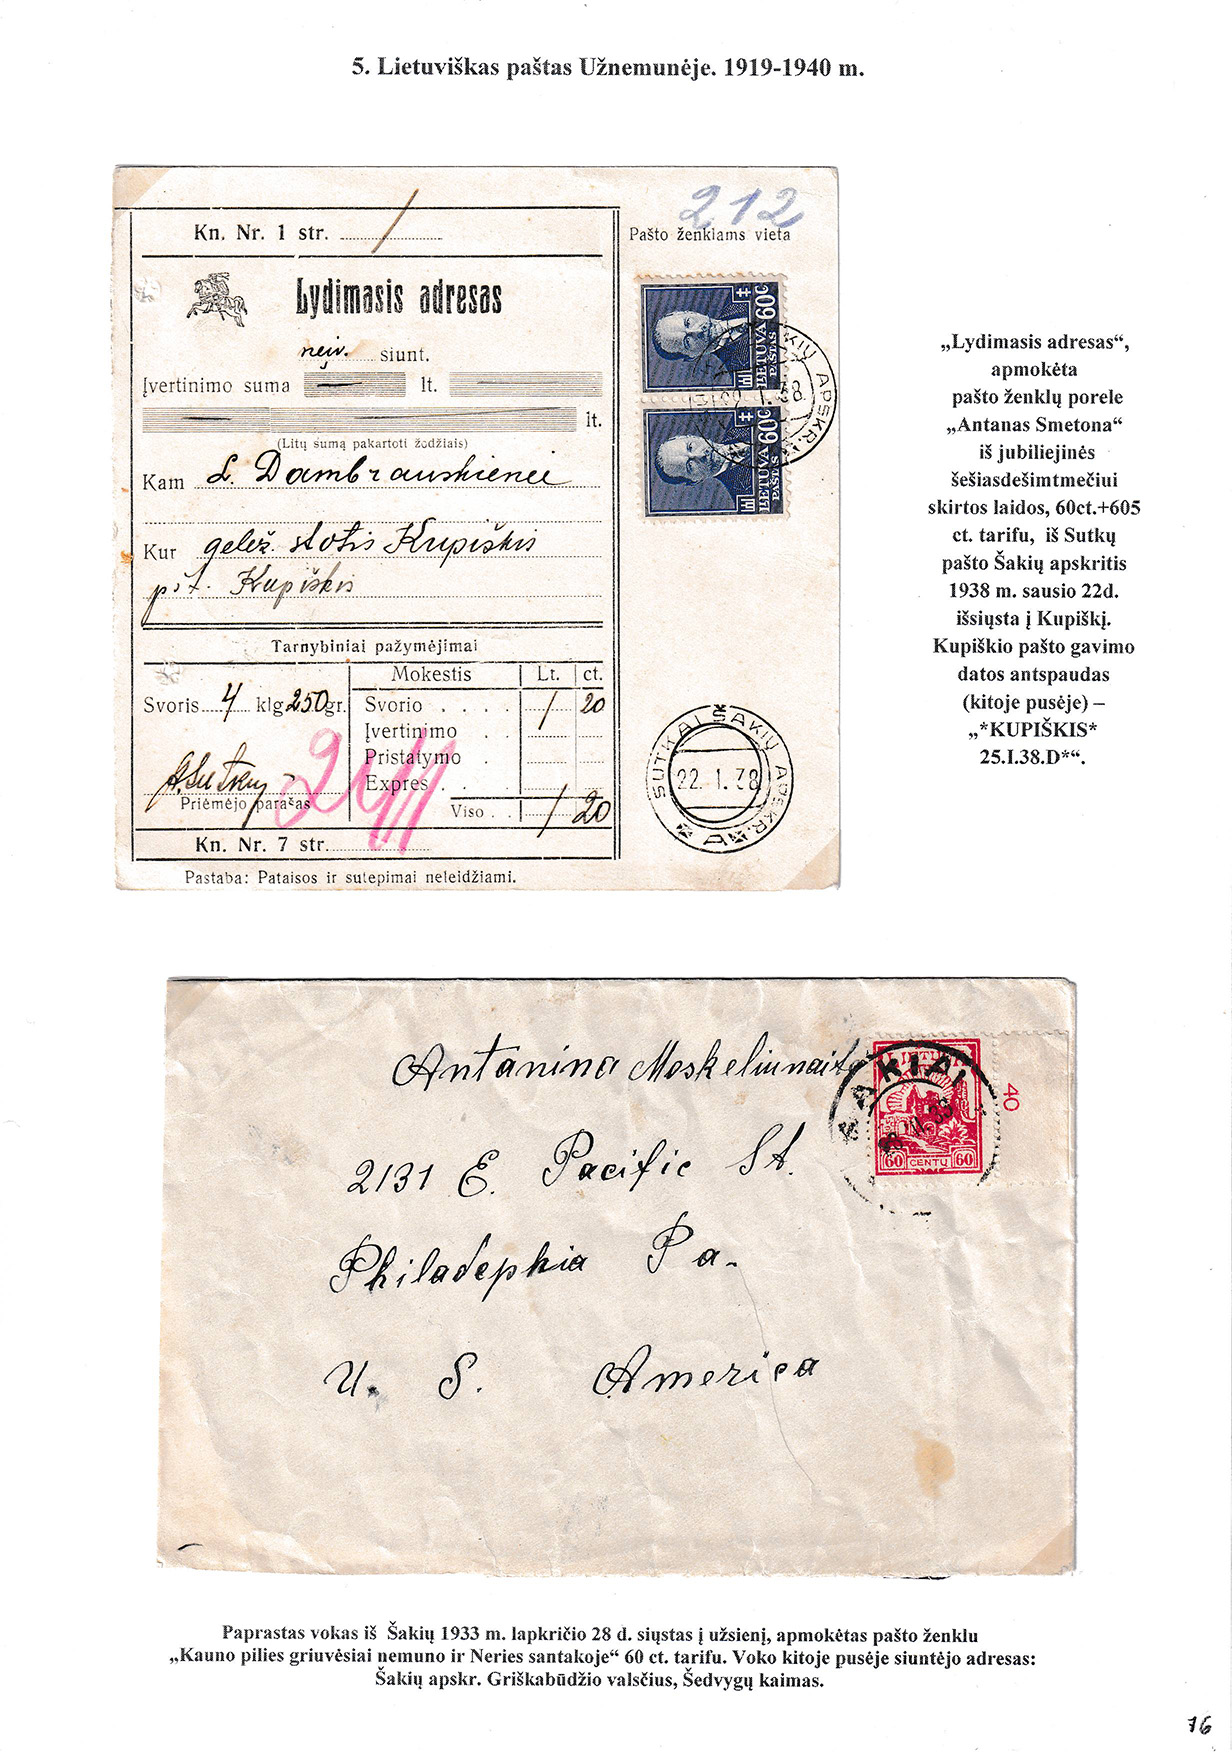 5. Lietuviškas paštas Užnemunėje. 1919-1940 m.
212
Kn. Nr. 1 str.
Pašto ženklams vieta
Lydimasis adresas
neįv. siunt.
Įvertinimo suma lt.
lt.
(Litų sumą pakartoti žodžiais)
Kam L. Dambrauskienei
Kur gelež. stotis Kupiškis
p št. Kupiškis
Tarnybiniai pažymėjimai
Mokestis Lt. ct.
Svoris 4 klg 250 gr. Svorio 1 20
Įvertinimo
Pristatymo
Expres
Priėmėjo parašas
Viso 1 20
Kn. Nr. 7 str.
Pastaba: Pataisos ir sutepimai neleidžiami.
60c LIETUVA PAŠTAS
60c LIETUVA PAŠTAS
SUTKAI ŠAKIŲ APSKR.
22.1.38
A
„Lydimasis adresas“,
apmokėta
pašto ženklų porele
„Antanas Smetona“
iš jubiliejinės
šešiasdešimtmečiui
skirtos laidos, 60ct.+605
ct. tarifu, iš Sutkų
pašto Šakių apskritis
1938 m. sausio 22d.
išsiųsta į Kupiškį.
Kupiškio pašto gavimo
datos antspaudas
(kitoje pusėje) –
„*KUPIŠKIS*
25.I.38.D*“.
Antanina Moskeliunaite
2131 E. Pacific St.
Philadephia Pa.
U. S. America
LIETUVA
60 CENTŲ 60
40
ŠAKIAI
Paprastas vokas iš Šakių 1933 m. lapkričio 28 d. siųstas į užsienį, apmokėtas pašto ženklu
„Kauno pilies griuvėsiai nemuno ir Neries santakoje“ 60 ct. tarifu. Voko kitoje pusėje siuntėjo adresas:
Šakių apskr. Griškabūdžio valsčius, Šedvygų kaimas.
76